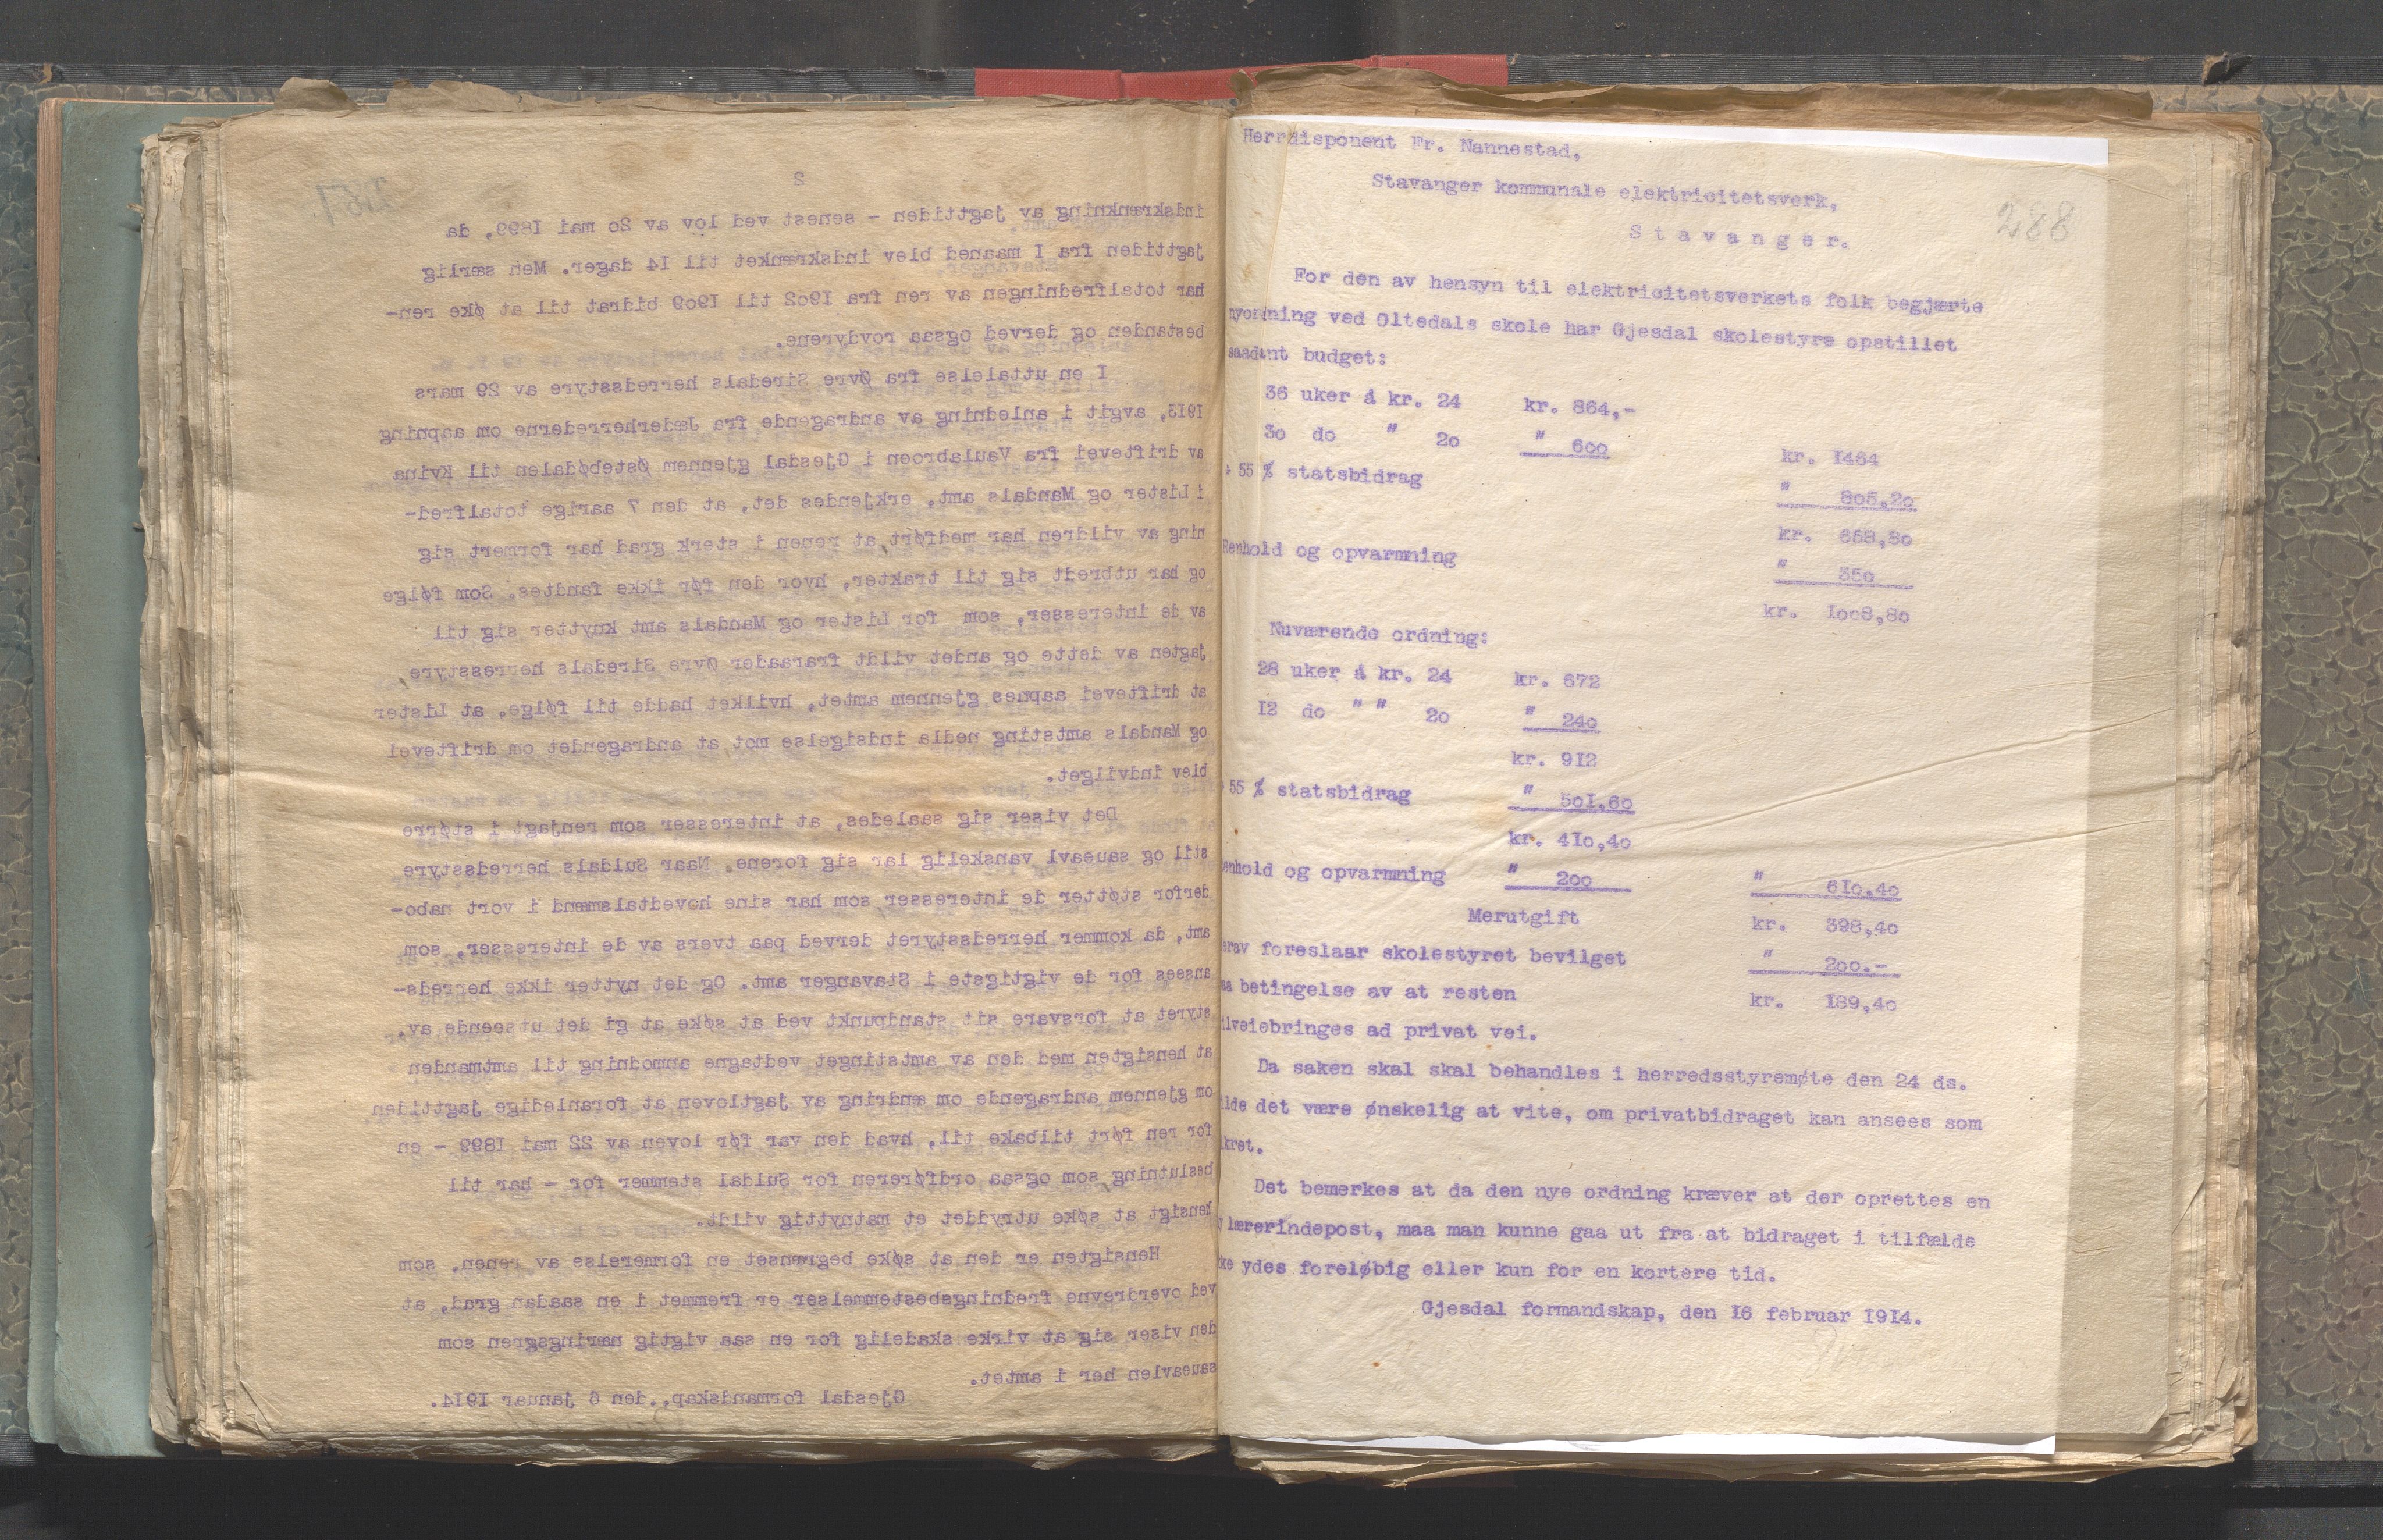 2
287
indskrænkning av jagttiden - senest ved lov av 20 mai 1899, da
jagttiden fra 1 maaned blev indskrænket til 14 dager. Men særlig
har totalfredningen av ren fra 1902 til 1909 bidrat til at øke ren-
bestanden og derved ogsaa rovdyrene.
I en uttalelse fra Øvre Siredals herredsstyre av 29 mars
1913, avgit i anledning av andragende fra Jæderherrederne om aapning
av driftevei fra Vaulabroen i Gjesdal gjennem Østebødalen til Kvina
i Lister og Mandals amt, erkjendes det, at den 7 aarige totalfred-
ning av vildren har medført, at renen i sterk grad har formert sig
og har utbredt sig til trakter, hvor den før ikke fandtes. Som følge
av de interesser, som for Lister og Mandals amt knytter sig til
jagten av dette og andet vildt fraraader Øvre Siredals herresstyre,
at driftevei aapnes gjennem amtet, hvilket hadde til følge, at Lister
og Mandals amtsting nedla indsigelse mot, at andragendet om driftevei
blev indvilget.
Det viser sig saaledes, at interesser som renjagt i større
stil og saueavl vanskelig lar sig forene. Naar Suldals herredsstyre
derfor støtter de interesser, som har sine hovedtalsmænd i vort nabo-
amt, da kommer herredsstyret derved paa tvers av de interesser, som
ansees for de vigtigste i Stavanger amt. Og det nytter ikke herreds-
styret at forsvare sit standpunkt ved at søke at gi det utseende av,
at hensigten med den av amtstinget vedtagne anmodning til amtmanden
om gjennem andragende om ændring av jagtloven at foranledige jagttiden
for ren ført tilbake til, hvad den var før loven av 22 mai 1899 - en
beslutning, som ogsaa ordføreren for Suldal stemmer for - har til
hensigt at søke utryddet et matnyttig vildt.
Hensigten er den at søke begrænset en formerelse av renen, som
ved overdrevne fredningsbestemmelser er fremmet i en saadan grad, at
den viser sig at virke skadelig for en saa vigtig næringsgren som
saueavlen her i amtet.
Gjesdal formandskap, den 6 januar 1914.
Herr disponent Fr. Nannestad,
Stavanger kommunale elektricitetsverk,
Stavanger.
288
For den av hensyn til elektricitetsverkets folk begjærte
nyordning ved Oltedals skole har Gjesdal skolestyre opstillet
saadant budget:
36 uker á kr. 24 kr. 864,-
30 do " 20 " 600 kr. 1464
+ 55 % statsbidrag " 805,20
kr. 658,80
Renhold og opvarmning " 350
kr. 1008,80
Nuværende ordning:
28 uker á kr. 24 kr. 672
12 do " " 20 " 240
kr. 912
55 % statsbidrag " 501,60
kr. 410,40
enhold og opvarmning " 200 " 610,40
Merutgift kr. 398,40
erav foreslaar skolestyret bevilget " 200.-
aa betingelse av at resten kr. 189,40
ilveiebringes ad privat vei.
Da saken skal skal behandles i herredsstyremøte den 24 ds.
ilde det være ønskelig at vite, om privatbidraget kan ansees som
ikret.
Det bemerkes at da den nye ordning kræver at der oprettes en
y lærerindepost, maa man kunne gaa ut fra at bidraget i tilfælde
kke ydes foreløbig eller kun for en kortere tid.
Gjesdal formandskap, den 16 februar 1914.